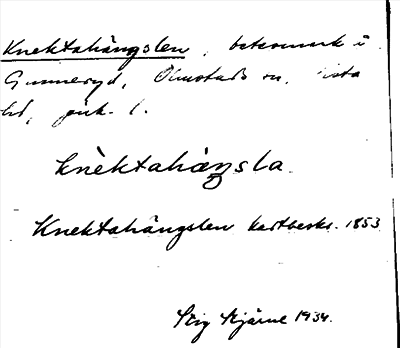 Knektahängslen, betesmark i
Gunneryd, Ölmstads sn, Vista
hd, Jönk. l.
knèktahæŋsla.
Knektahängslen kartbeskr. 1853
Stig Stjärne 1934.